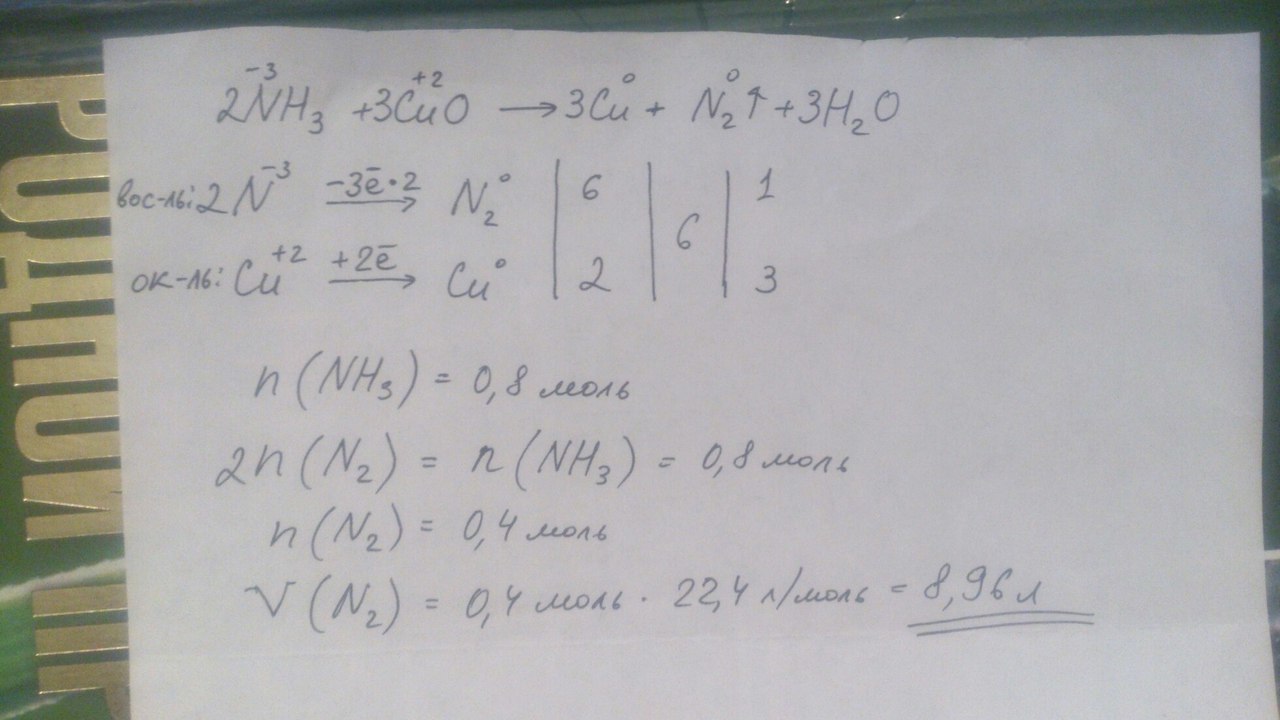 2N⁻³H₃ + 3Cu⁺²O ⟶ 3Cu⁰ + N₂⁰↑ + 3H₂O
вос-ль: 2N⁻³ −3ē·2 ⟶ N₂⁰ | 6 | | 1
6
ок-ль: Cu⁺² +2ē ⟶ Cu⁰ | 2 | | 3
n(NH₃) = 0,8 моль
2n(N₂) = n(NH₃) = 0,8 моль
n(N₂) = 0,4 моль
V(N₂) = 0,4 моль · 22,4 л/моль = 8,96 л